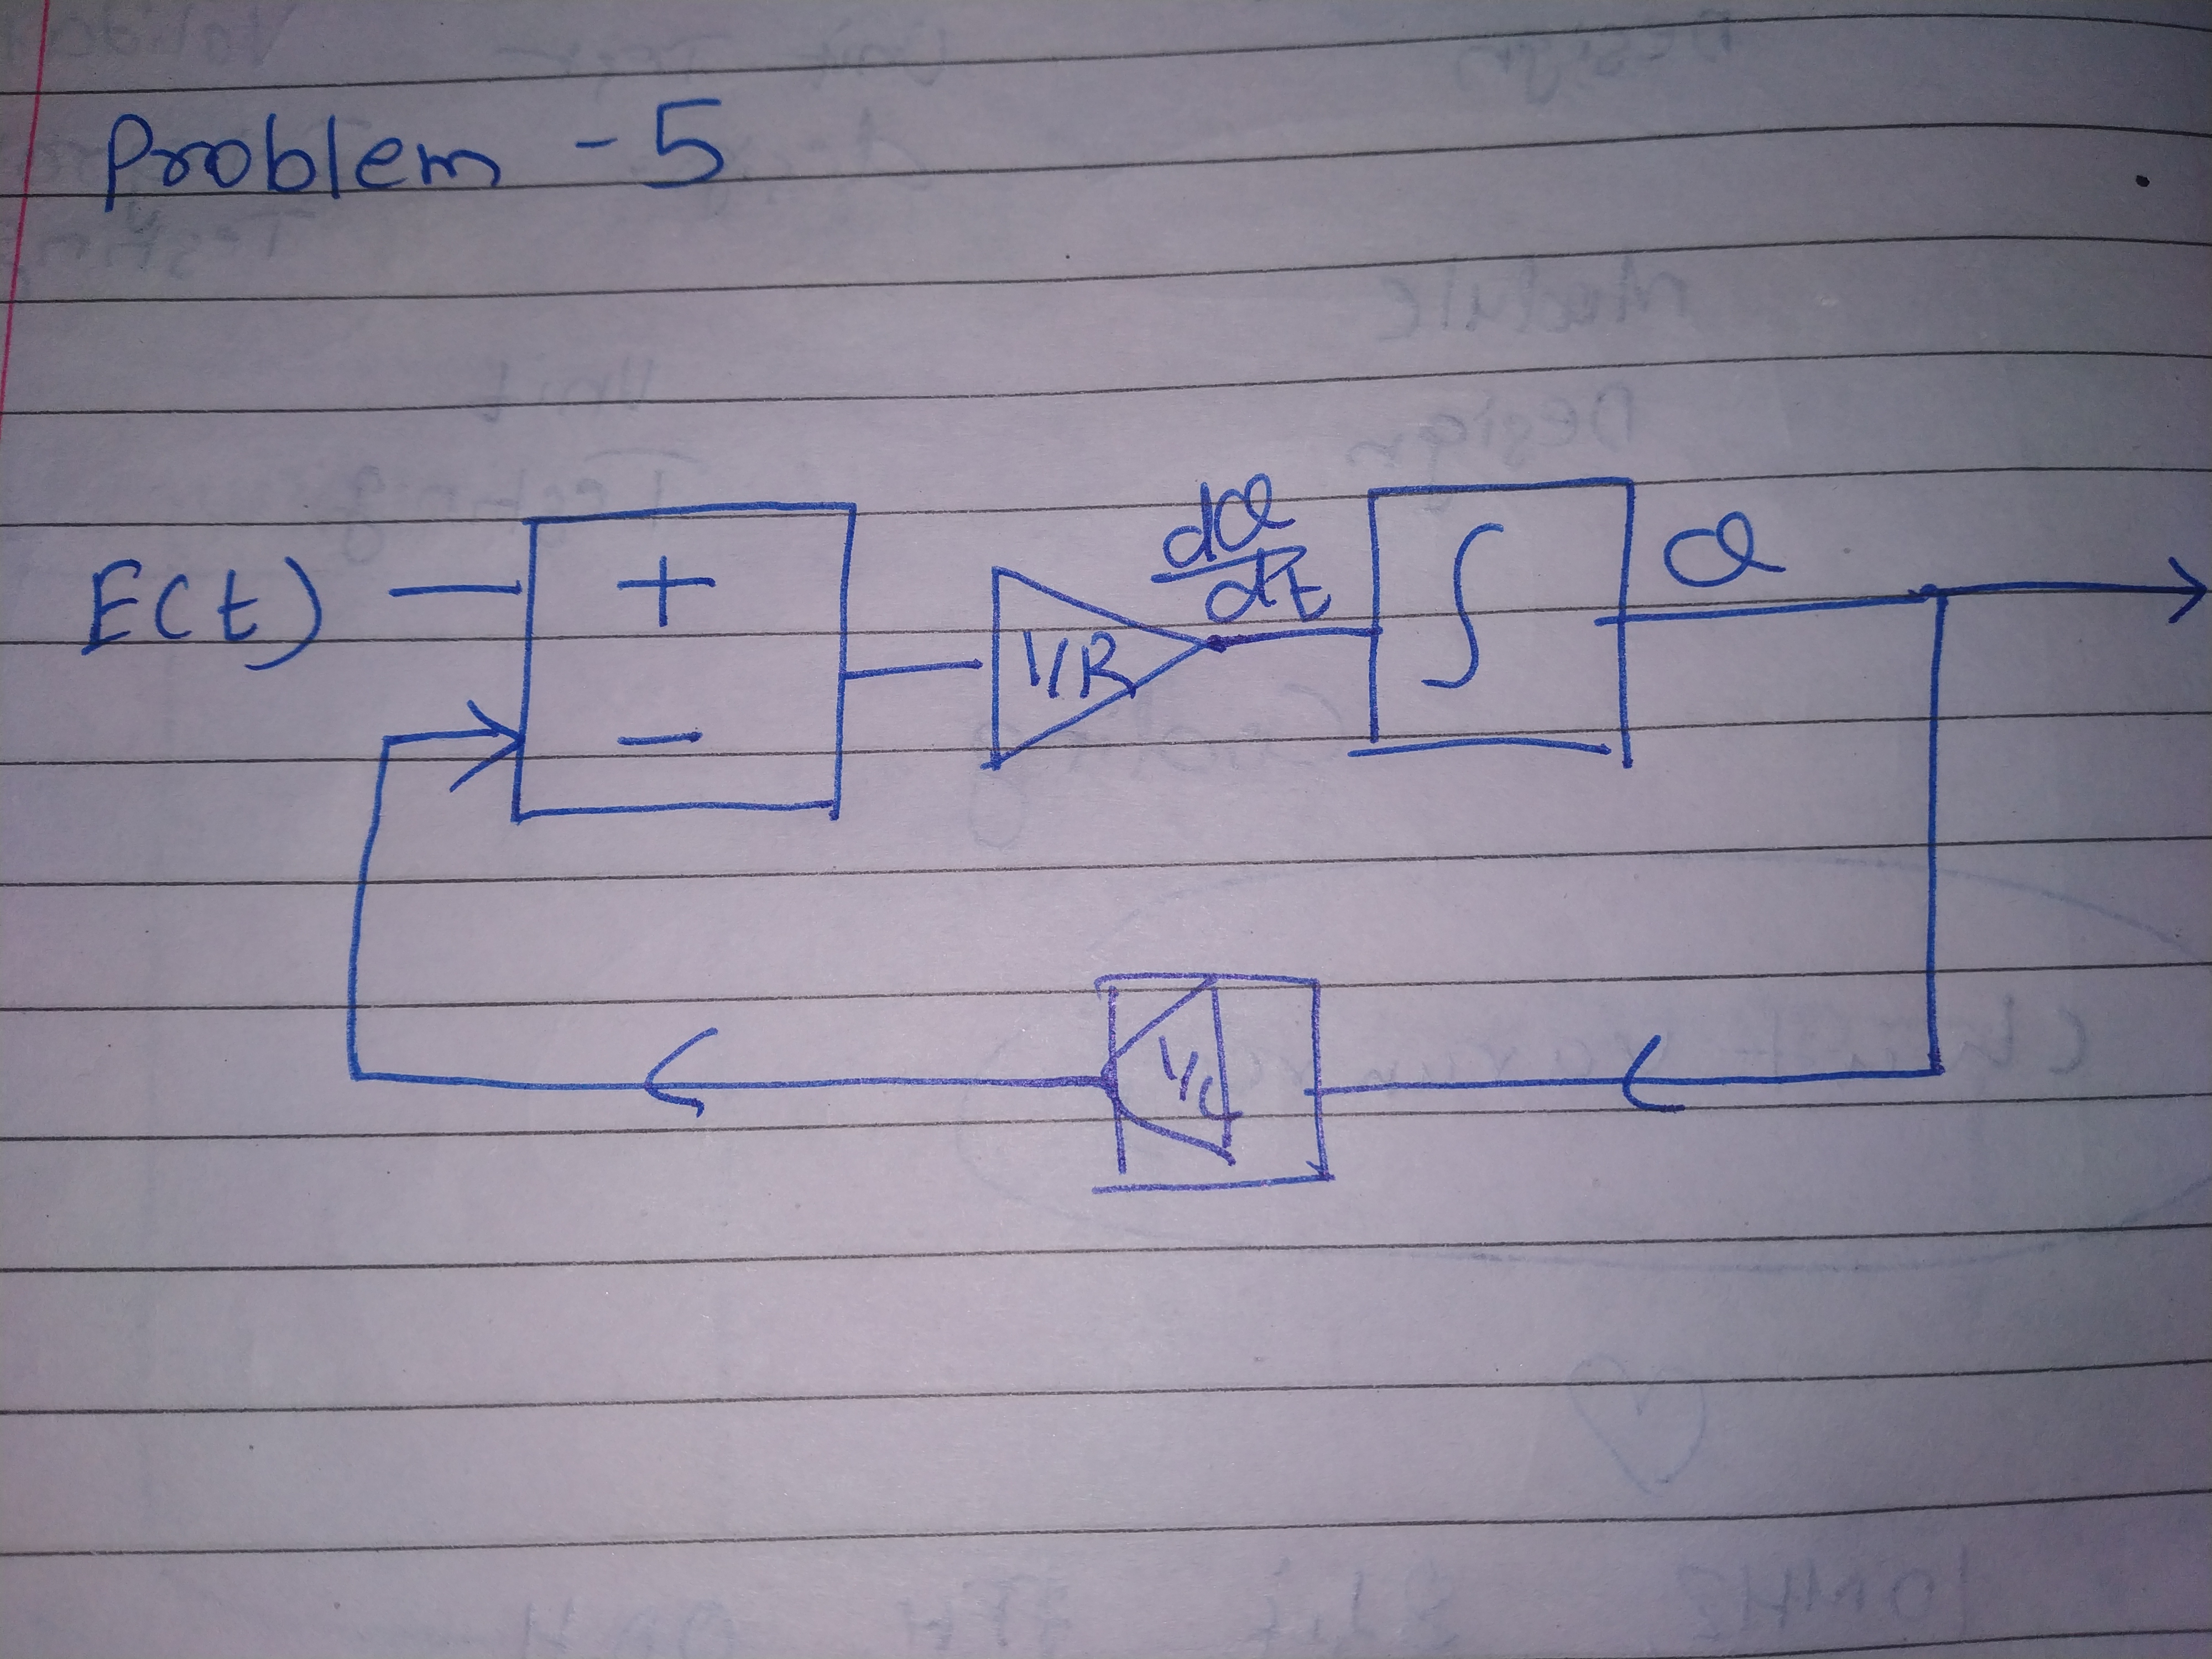 Problem - 5
E(t)
+
-
1/R
dQ
dt
∫
Q
1/C